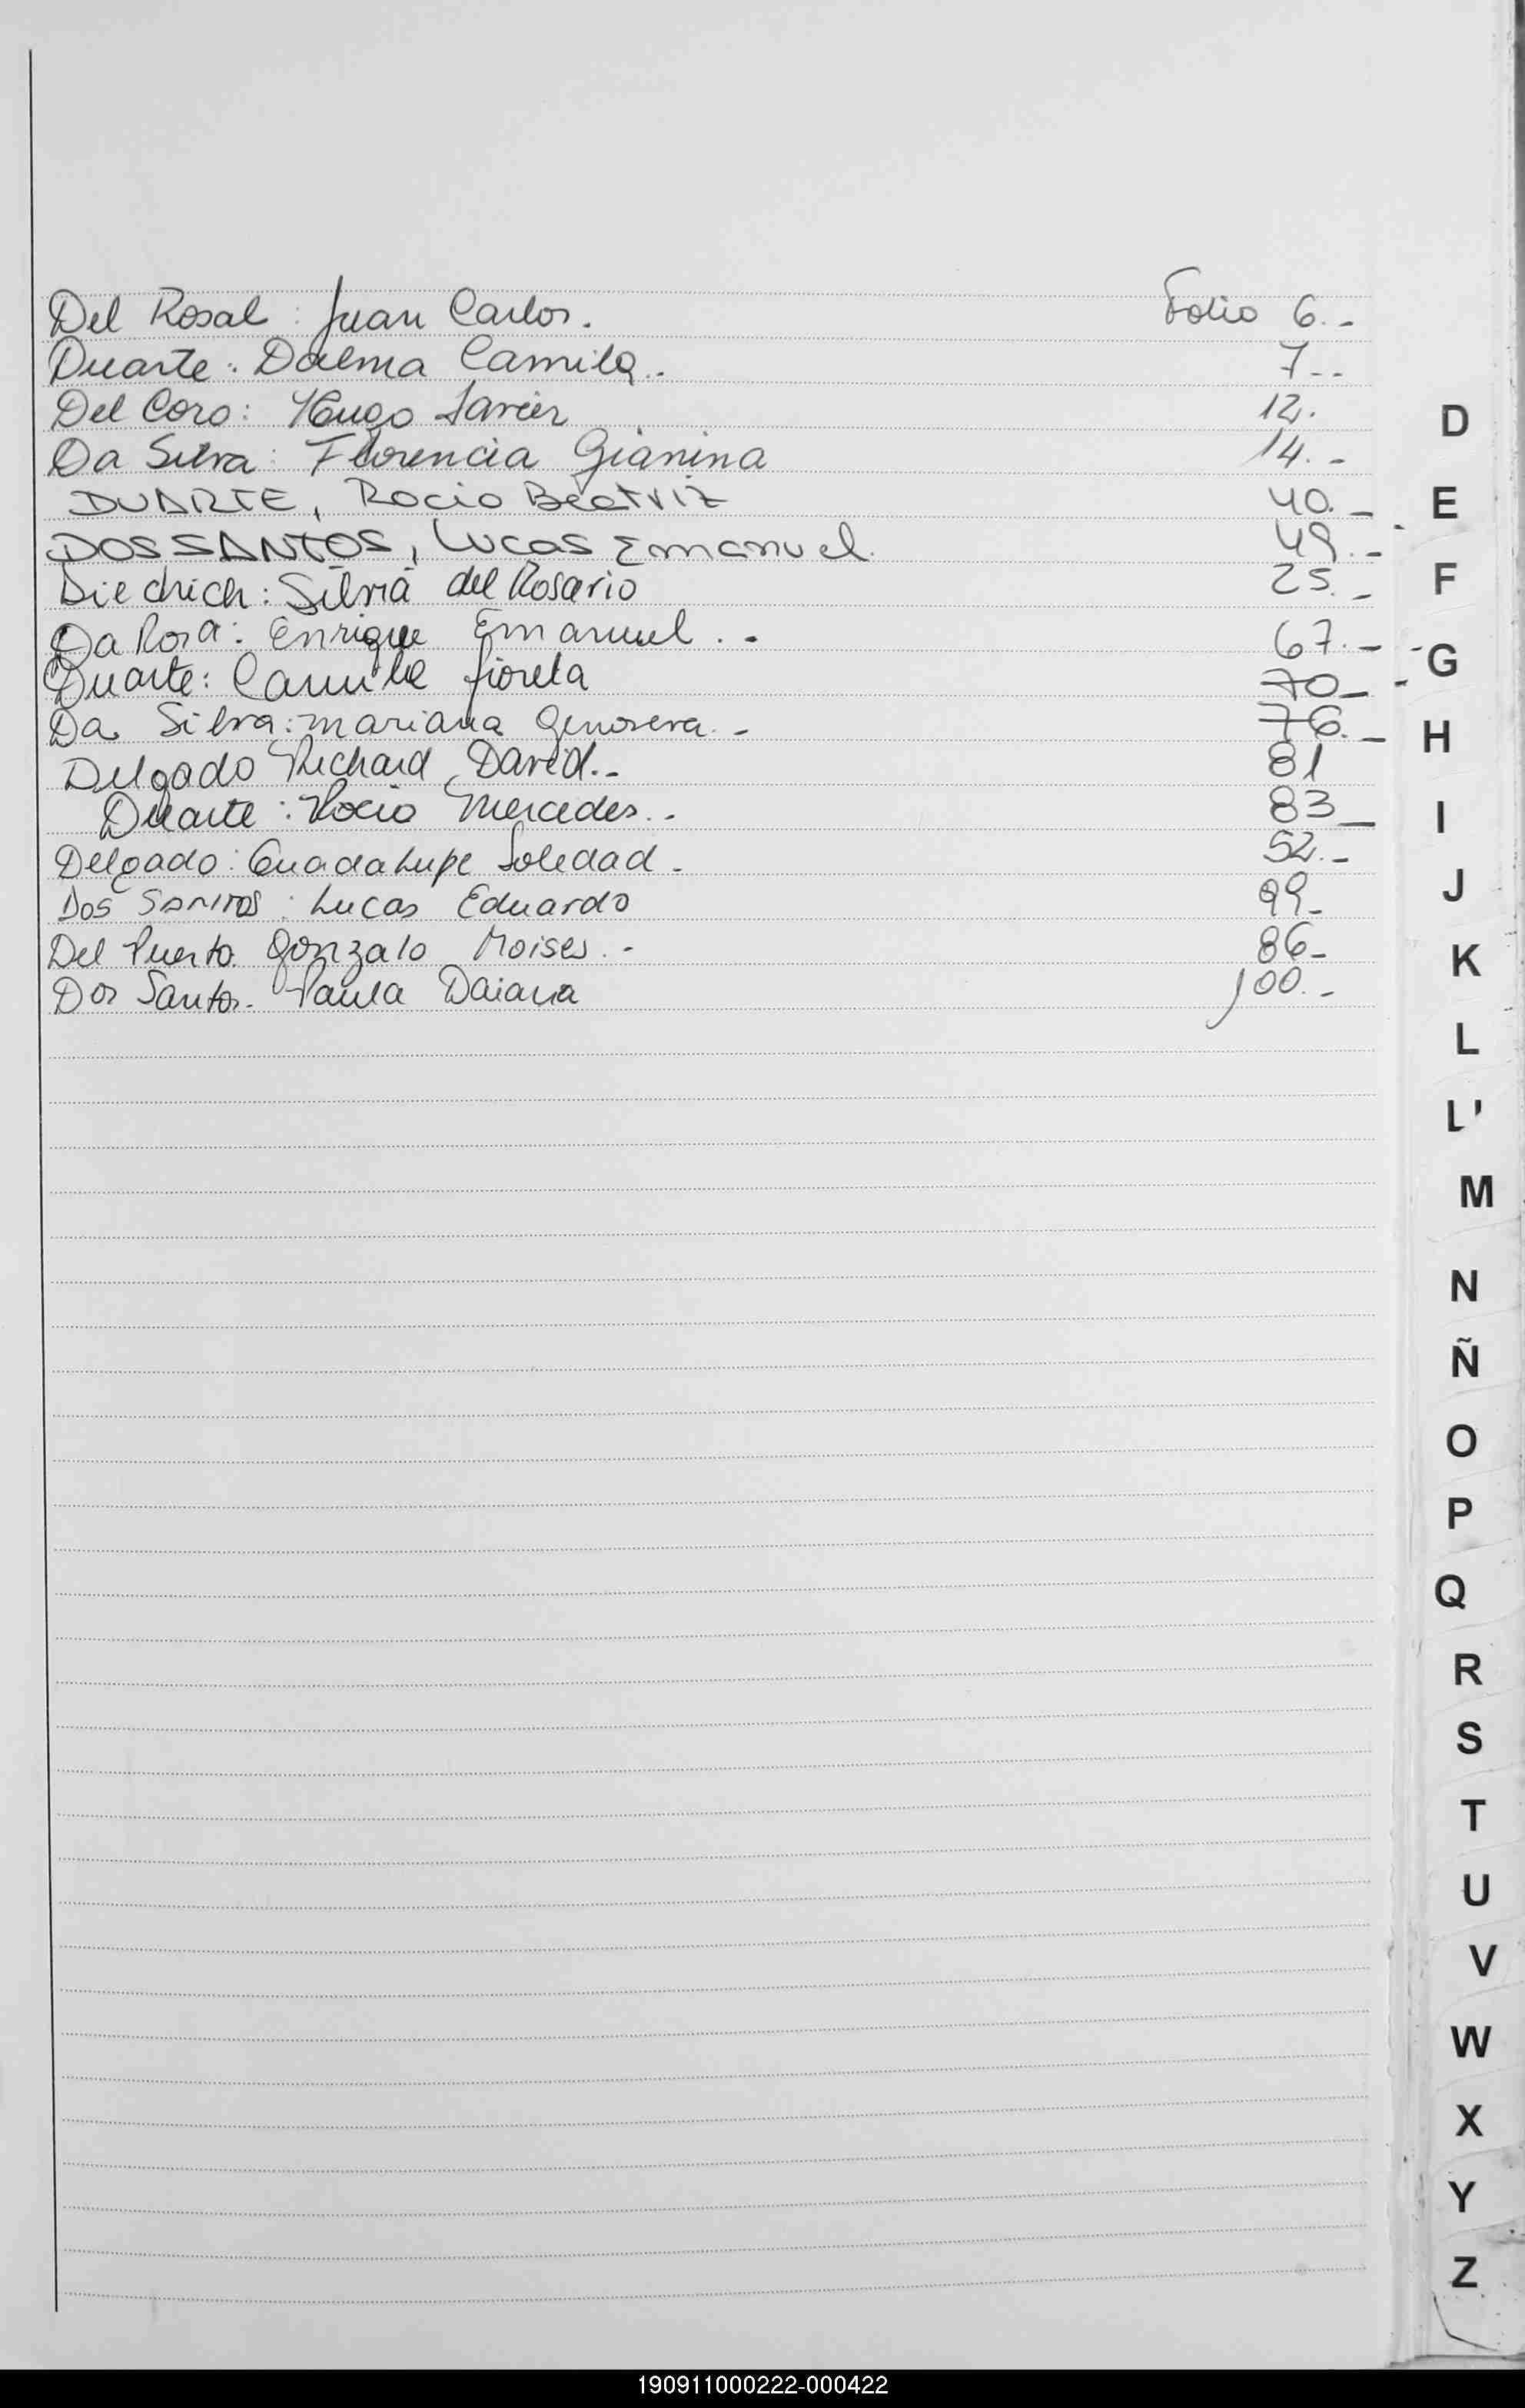 Del Rosal : Juan Carlos. Folio 6.-
Duarte : Dalma Camila.. 7--
Del Coro : Hugo Javier 12.
Da Silva : Florencia Gianina 14.-
DUARTE, Rocio Beatriz 40.-
DOS SANTOS, Lucas Emanuel. 49.-
Diechrich : Silvia del Rosario 25.-
Da Rosa : Enrique Emanuel .- 67.-
Duarte : Camila fiorela 70-
Da Silva : mariana Genoveva.- 76.-
Delgado Richard David.- 81
Duarte : Rocio Mercedes.. 83-
Delgado : Guadalupe Soledad- 52.-
Dos Santos : Lucas Eduardo 99-
Del Puerto. Gonzalo Moises.- 86-
Dos Santos. Paula Daiana 100.-
D
E
F
G
H
I
J
K
L
L'
M
N
Ñ
O
P
Q
R
S
T
U
V
W
X
Y
Z
190911000222-000422